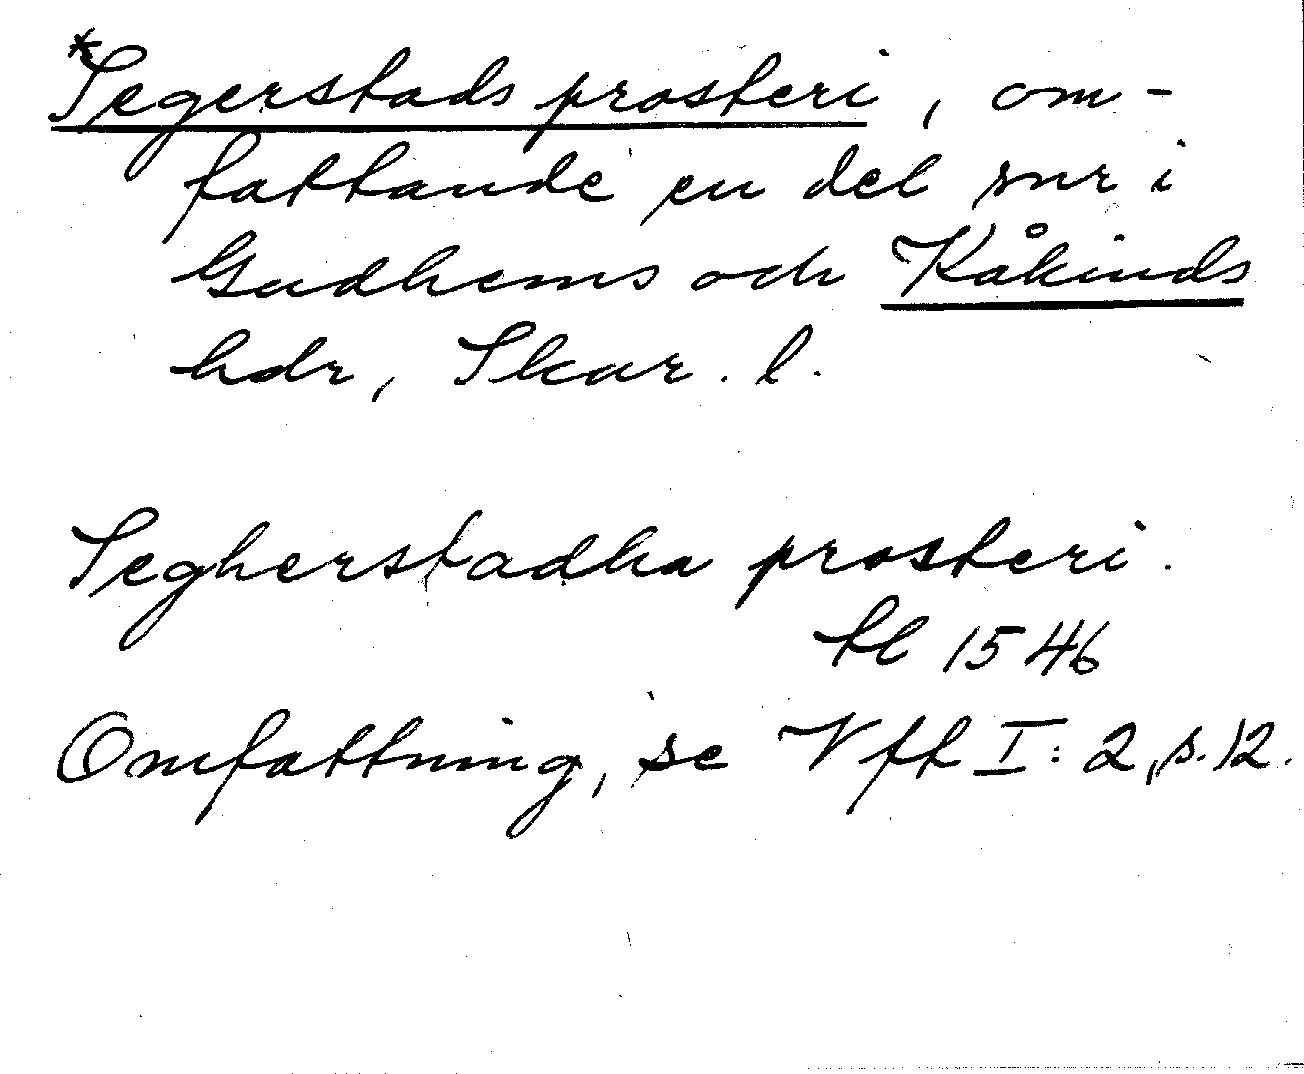 *Segerstads prosteri, om-
fattande en del snr i
Gudhems och Kåkinds
hdr, Skar. l.
Segherstadha prosteri.
tl 1546
Omfattning, se Vft I: 2, s. 12.